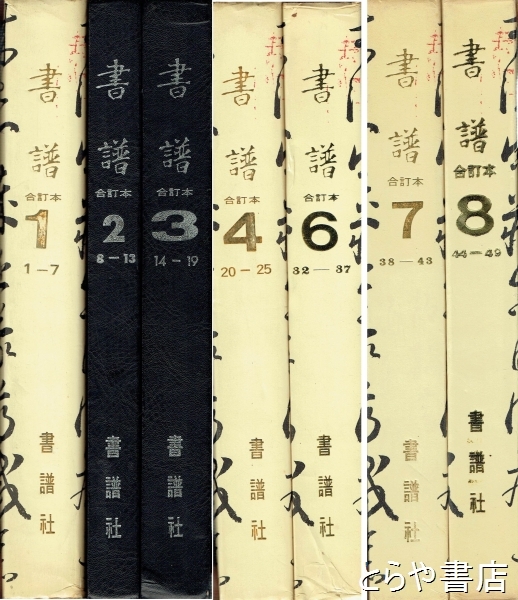 書譜
合訂本
1
1－7
書譜社
書譜
合訂本
2
8－13
書譜社
書譜
合訂本
3
14－19
書譜社
書譜
合訂本
4
20－25
書譜社
書譜
合訂本
6
32－37
書譜社
書譜
合訂本
7
38－43
書譜社
書譜
合訂本
8
44－49
書譜社
とらや書店